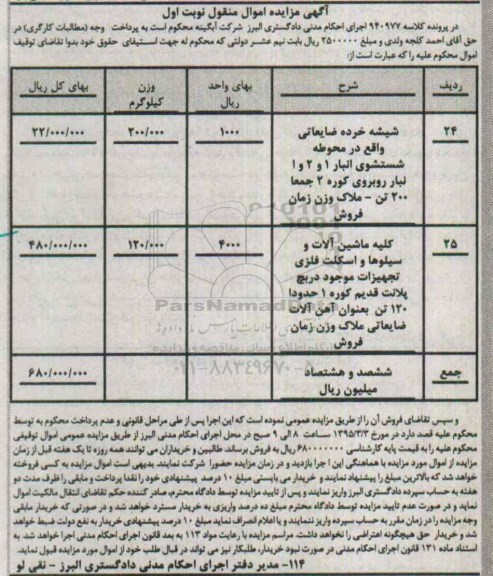 آگهی مزایده اموال منقول نوبت اول
در پرونده کلاسه ۹۴۰۹۷۷ اجرای احکام مدنی دادگستری البرز شرکت آبگینه محکوم است به پرداخت وجه (مطالبات کارگری) در
حق آقای احمد گلجه ولدی و مبلغ ۲۵۰۰۰۰۰ ریال بابت نیم عشر دولتی که محکوم له جهت استیفای حقوق خود بدوا تقاضای توقیف
اموال محکوم علیه را که عبارت است از:
ردیف شرح بهای واحد ریال وزن کیلوگرم بهای کل ریال
۲۴ شیشه خرده ضایعاتی ۱۰۰۰ ۲۰۰/۰۰۰ ۲۲/۰۰۰/۰۰۰
واقع در محوطه
شستشوی انبار ۱ و ۲ و ا
نبار روبروی کوره ۲ جمعا
۲۰۰ تن - ملاک وزن زمان
فروش
۲۵ کلیه ماشین آلات و ۴۰۰۰ ۱۲۰/۰۰۰ ۴۸۰/۰۰۰/۰۰۰
سیلوها و اسکلت فلزی
تجهیزات موجود دربچ
پلانت قدیم کوره ۱ حدودا
۱۲۰ تن بعنوان آهن آلات
ضایعاتی ملاک وزن زمان
فروش
جمع ششصد و هشتصاد ۶۸۰/۰۰۰/۰۰۰
میلیون ریال
ParsNamadData
۰۲۱-۸۸۳۴۹۶۷۰
و سپس تقاضای فروش آن را از طریق مزایده عمومی نموده است که این اجرا پس از طی مراحل قانونی و عدم پرداخت محکوم به توسط
محکوم علیه قصد دارد در مورخ ۱۳۹۵/۳/۳ ساعت ۸ الی ۹ صبح در محل اجرای احکام مدنی البرز از طریق مزایده عمومی اموال توقیفی
محکوم علیه را به قیمت پایه کارشناسی ۶۸۰۰۰۰۰۰۰ ریال به فروش برساند. طالبین و خریداران می توانند همه روزه تا یک هفته قبل از زمان
مزایده از اموال مورد مزایده با هماهنگی این اجرا بازدید و در زمان مزایده حضورا شرکت نمایند. بدیهی است اموال مزایده به کسی فروخته
خواهد شد که بالاترین مبلغ را پیشنهاد نمایند و خریدار می بایستی مبلغ ۱۰ درصد پیشنهادی خود را نقدا پرداخت و مابقی را ظرف مدت دو
هفته به حساب سپرده دادگستری البرز واریز نمایند و پس از تایید مزایده توسط دادگاه محترم، صادر کننده حکم تقاضای انتقال مالکیت اموال
نماید و در صورت عدم تایید مزایده توسط دادگاه محترم مبلغ ده درصد واریزی به خریدار مسترد خواهد شد و در صورتی که خریدار مابقی
وجه مزایده را در زمان مقرر به حساب سپرده واریز ننمایند و یا اعلام انصراف نماید مبلغ ۱۰ درصد پیشنهادی خریدار به نفع دولت ضبط خواهد
شد و خریدار حق هیچگونه اعتراضی را نخواهد داشت. مراسم مزایده با رعایت مواد ۱۱۳ به بعد قانون اجرای احکام مدنی اجرا خواهد شد. به
استناد ماده ۱۳۱ قانون اجرای احکام مدنی در صورت نبود خریدار، طلبکار نیز می تواند در قبال طلب خود از اموال مورد مزایده قبول نماید.
۱۱۴- مدیر دفتر اجرای احکام مدنی دادگستری البرز - نقی لو